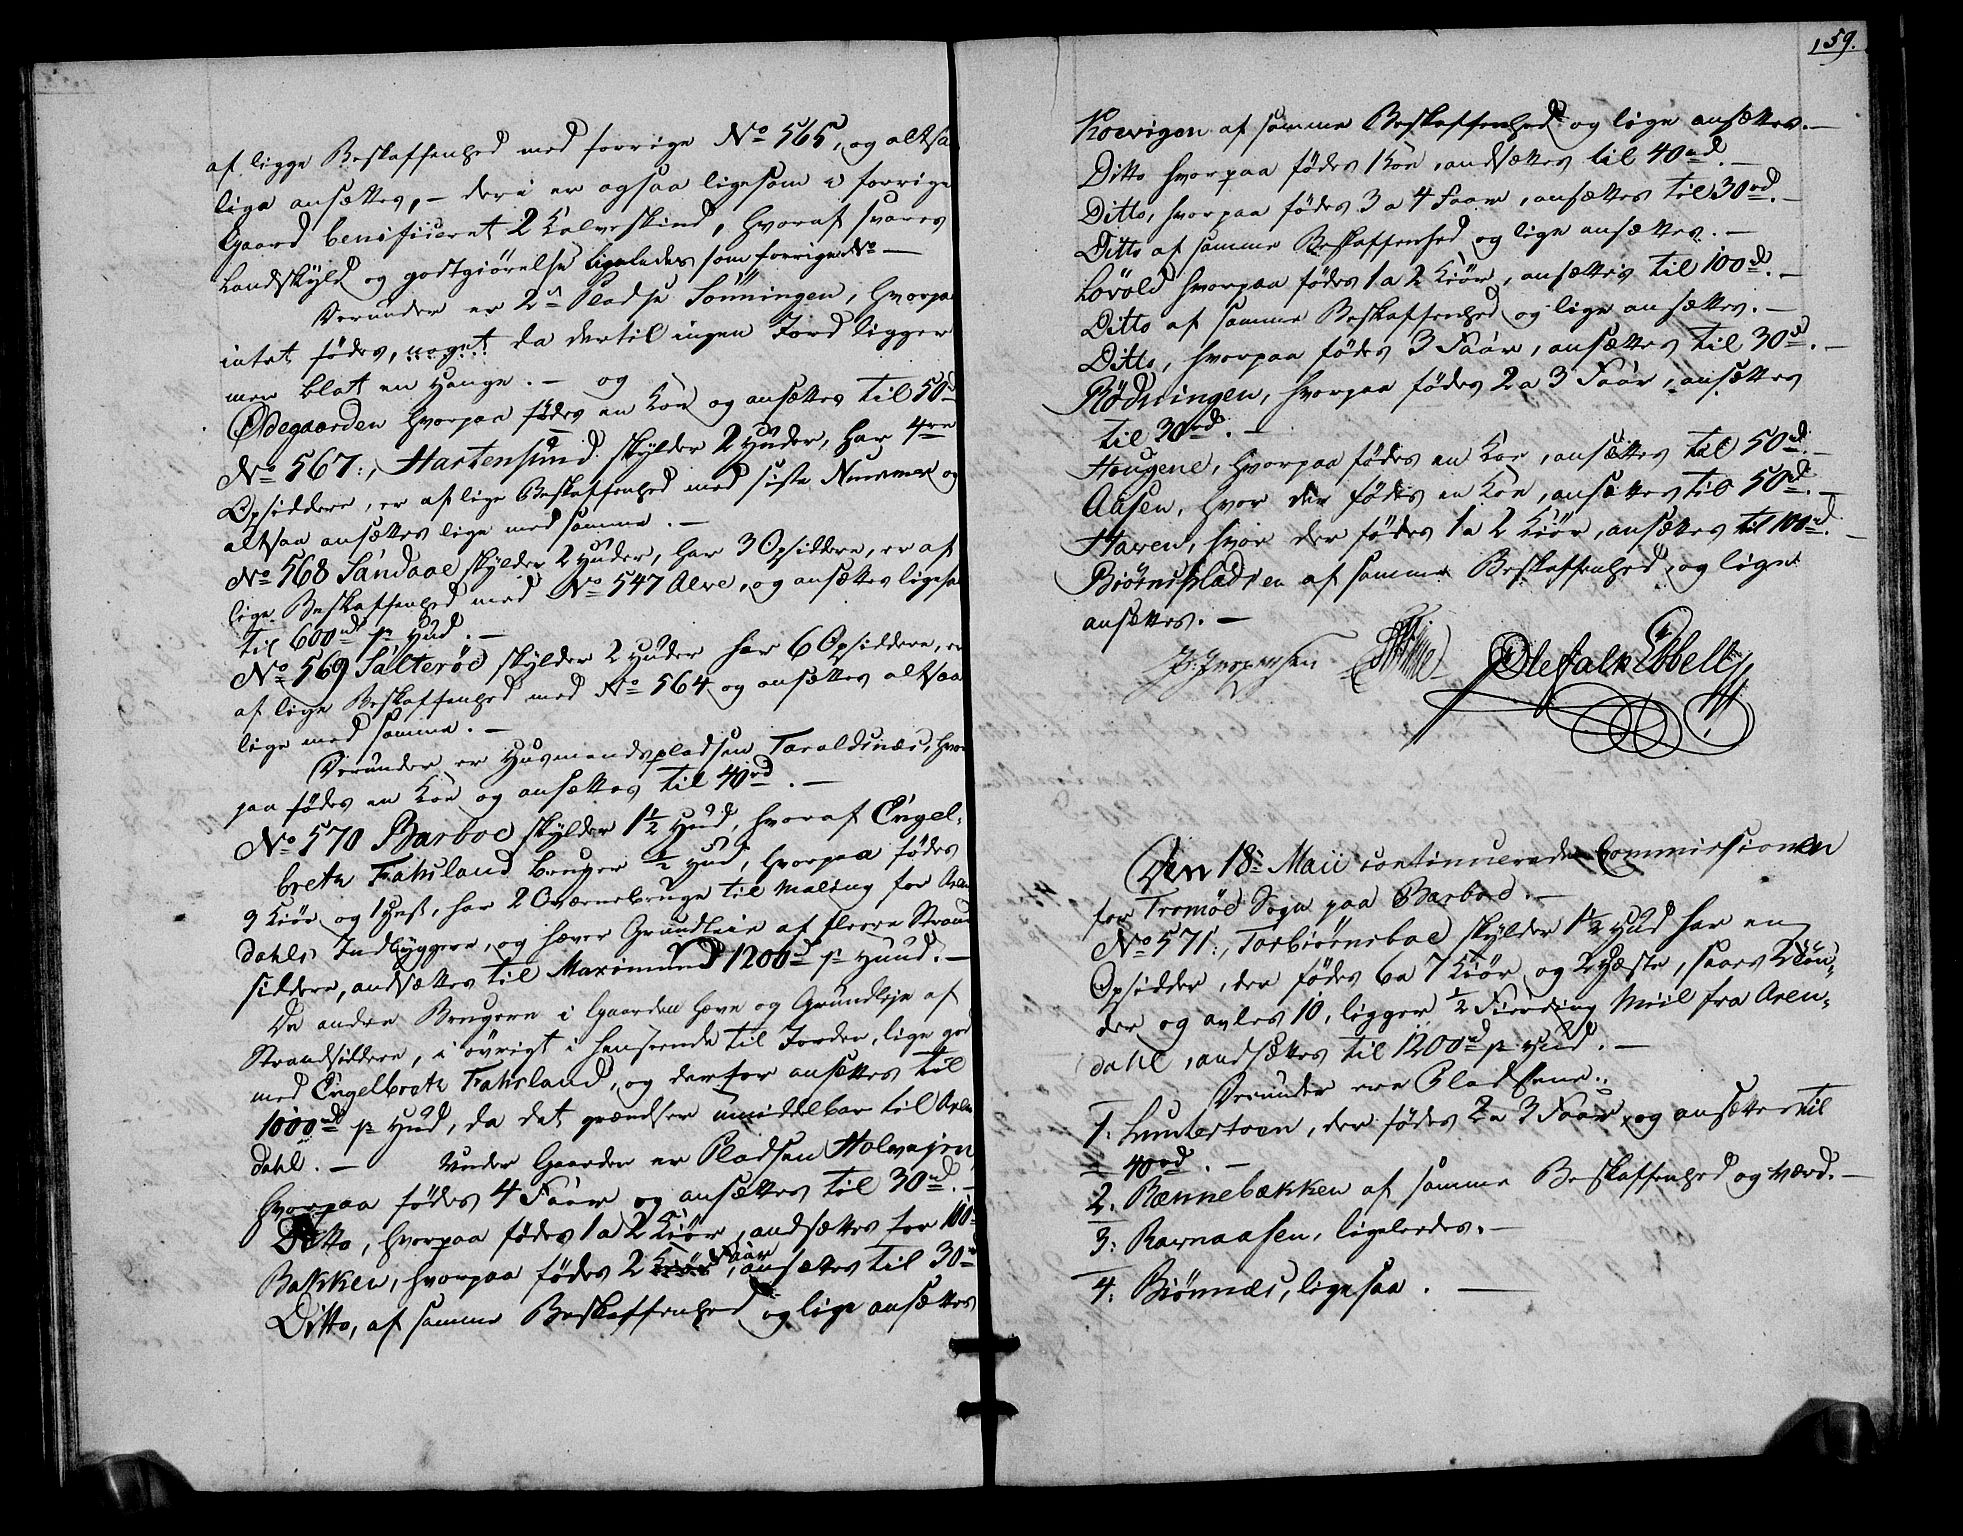 af ligge Beskaffenhed med forrige No 565, og altsaa
lige ansættes, – deri er ogsaa ligesom i forrige
Gaard benificeret 2 Kalveskind, hvoraf svares
Landskyld og godtgiörelse ligeledes som forrige No –
Derunder er 2de Pladse Sönningen, hvorpaa
intet födes, noget da dertil ingen Jord ligger
men blot en Hauge. – og
Ödegaarden hvorpaa födes en Koe og ansættes til 50rd
No 567:, Hartensund skylder 2 Huder, har 4re
Opsiddere, er af lige Beskaffenhed med siste Nummer og
altsaa ansættes lige med samme. –
No 568 Sandaae skylder 2 Huder, har 3 Opsiddere, er af
lige Beskaffenhed med No 547 Alve, og ansættes ligesaa
til 600rd pr Hud. –
No 569 Salteröe skylder 2 Huder har 6 Opsiddere, er
af lige Beskaffenhed med No 564 og ansættes altsaa
lige med samme. –
Derunder er Husmandspladsen Taraldsnæs, hvor
paa födes en Koe og ansættes til 40rd. –
No 570 Barboe skylder 1½ Hud, hvoraf Engel-
breth Fahsland bruger ½ Hud, hvorpaa födes
9 Kiör og 1 Hest, har 2 Qværnebruge til Maling for Aren
dahls Indbyggere, og hæver Grundleie af flere Strand
siddere, andsættes til Maximum 1200rd pr Huud. –
De andre Brugere i Gaarden hæve og Grundleje af
Strandsiddere, i övrigt i henseende til Jorden, lige god
med Engelbreth Fahsland, og derfor ansættes til
1000rd pr Hud, da det grændser umiddelbar til Aren
dahl. – Under Gaarden er Pladsen Holvejen,
hvorpaa födes 4 Faar og ansættes til 30rd. –
Ditto, hvorpaa födes 1 a 2 Kiör, andsættes for 100rd
Bakken, hvorpaa födes 2 Kiör Faar, ansættes til 30rd
Ditto, af samme Beskaffenhed og lige ansættes
159.
Koevigen af samme Beskaffenhed og lige ansættes. –
Ditto hvorpaa födes 1 Koe, andsættes til 40rd. –
Ditto, hvorpaa födes 3 a 4 Faar, ansættes til 30rd. –
Ditto af samme Beskaffenhed og lige ansættes. –
Lövold hvorpaa födes 1 a 2 Kiör, ansættes til 100rd. –
Ditto af samme Beskaffenhed og lige ansættes. –
Ditto, hvorpaa födes 3 Faar, ansættes til 30rd. –
Rödningen, hvorpaa födes 2 a 3 Faar, ansættes
til 30rd. –
Hougene, hvorpaa födes en Koe, ansættes til 50rd. –
Aasen, hvor der födes en Koe, ansættes til 50rd. –
Haven, hvor der födes 1 a 2 Kiör, ansættes til 100rd. –
Biörnepladsen af samme Beskaffenhed, og lige
ansættes. –
Ole Falk Ebbell
Den 18de Maii continuerede Commissionen
for Tromöe Sogn paa Barboe. –
No 571:, Torbiörnsboe skylder 1½ Hud har en
Opsidder, der födes 6 a 7 Kiör og 2 Heste, saaes 2 Tön-
der og avles 10, ligger ½ Fierding Miil fra Aren-
dahl, andsættes til 1200rd pr Hud. –
Derunder ere Pladsene:
1. Lundertoen, der födes 2 a 3 Faar, og ansættes til
40rd. –
2. Rænnebækken af samme Beskaffenhed og værd. –
3: Ravnaasen, ligeledes. –
4. Biönnæs, ligesaa. –